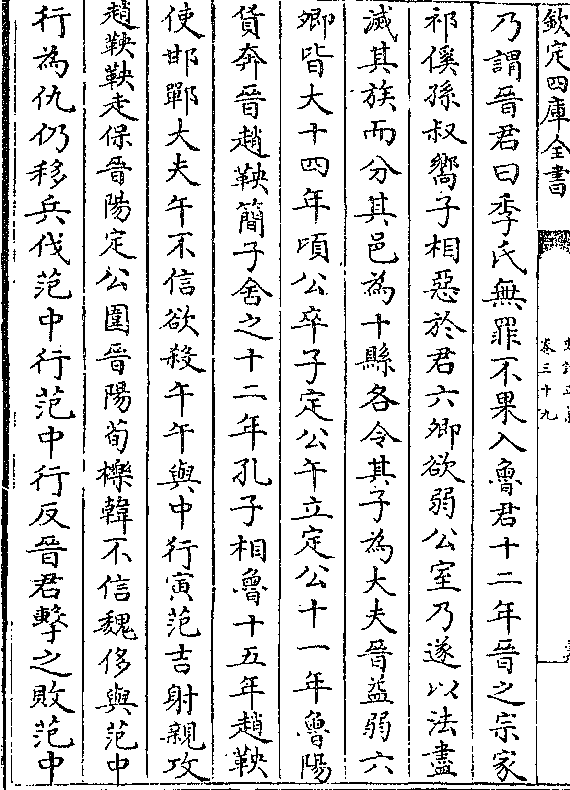 欽定四庫全書
卷三十九
乃謂晉君曰季氏無罪不果入魯君十二年晉之宗家
祁傒孫叔嚮子相惡於君六卿欲弱公室乃遂以法盡
滅其族而分其邑為十縣各令其子為大夫晉益弱六
卿皆大十四年頃公卒子定公午立定公十一年魯陽
貨奔晉趙鞅簡子舍之十二年孔子相魯十五年趙鞅
使邯鄲大夫午不信欲殺午午與中行寅范吉射親攻
趙鞅鞅走保晉陽定公圍晉陽荀櫟韓不信魏侈與范中
行為仇仍移兵伐范中行范中行反晉君擊之敗范中